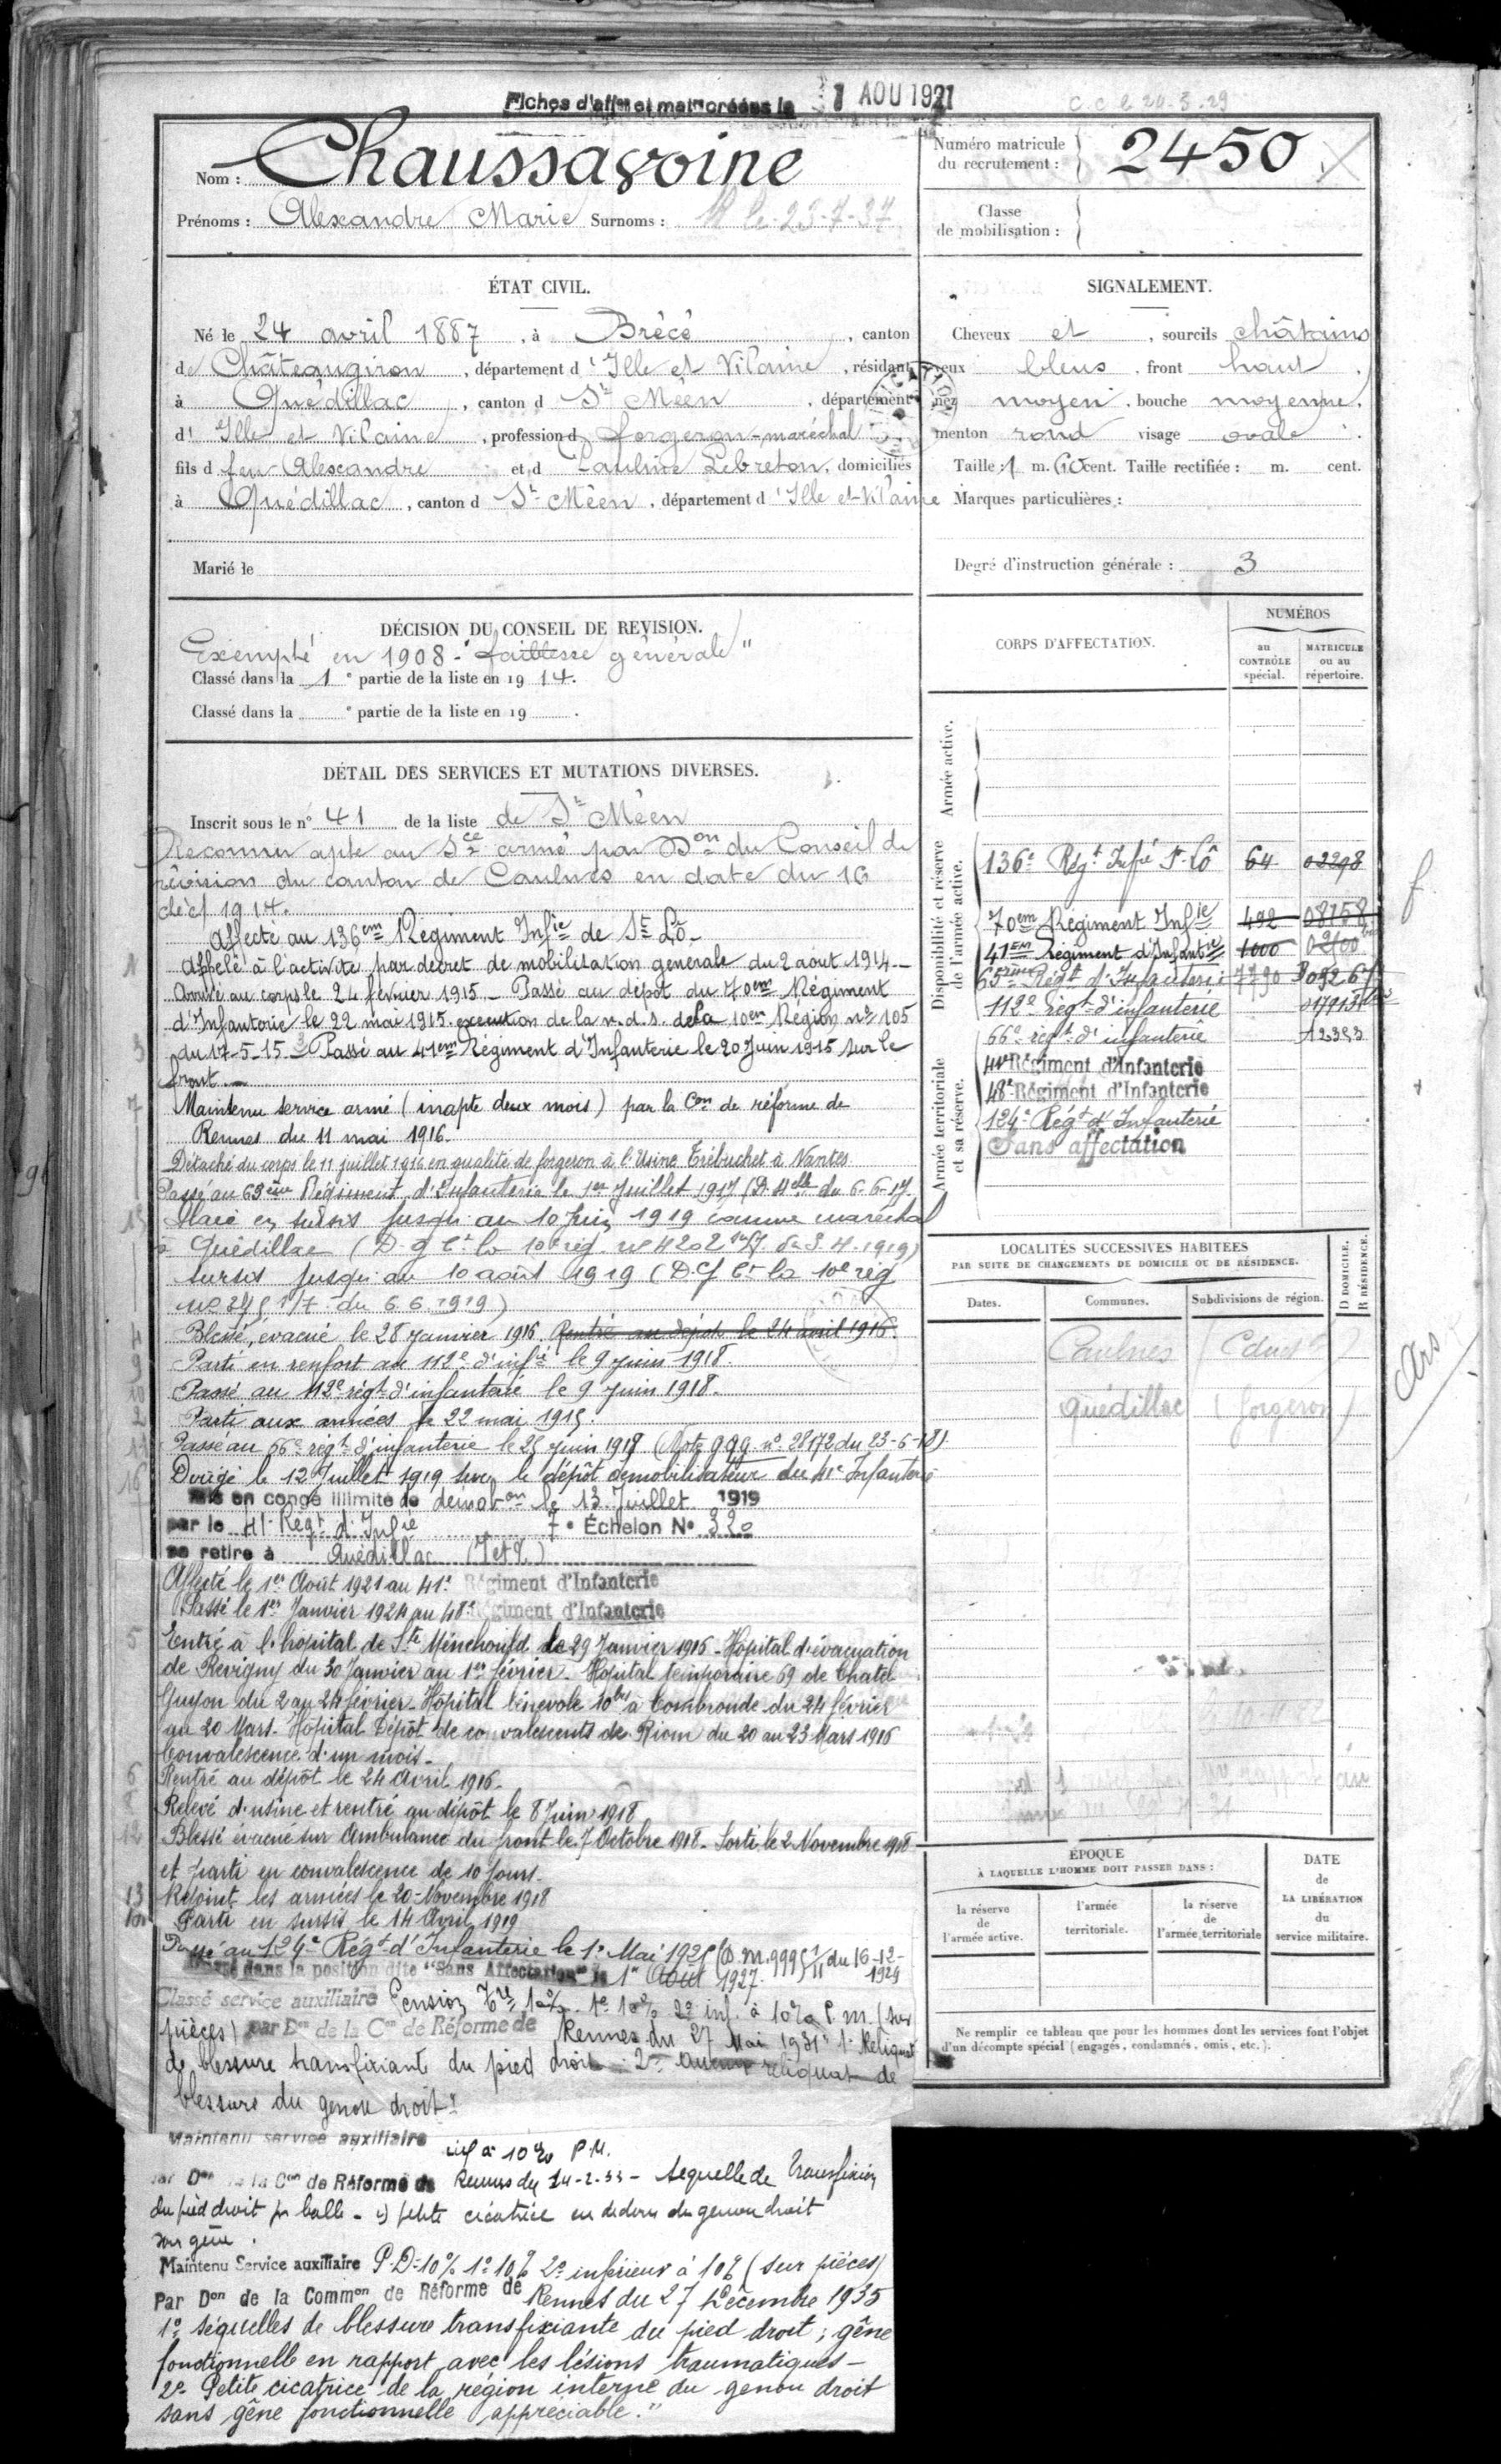 Fiches d'aff^on et mat^on créées le 1 AOU 1921
C.C. le 24.3.29
Nom : Chaussavoine
Prénoms : Alexandre Marie Surnoms : le 23-7-37
Numéro matricule du recrutement : 2450
Classe de mobilisation :
ÉTAT CIVIL.
Né le 24 avril 1887, à Brécé, canton
de Châteaugiron, département d'Ille et Vilaine, résidant
à Quédillac, canton d St Méen, département
d' Ille et Vilaine, profession d forgeron-maréchal
fils d feu Alexandre et d Pauline Lebreton, domiciliés
à Quédillac, canton d St Méen, département d'Ille et Vilaine
Marié le
SIGNALEMENT.
Cheveux et, sourcils châtains
yeux bleus, front haut,
nez moyen, bouche moyenne,
menton rond visage ovale.
Taille : 1 m. 60 cent. Taille rectifiée : m. cent.
Marques particulières :
Degré d'instruction générale : 3
DÉCISION DU CONSEIL DE REVISION.
Exempté en 1908 - "faiblesse générale"
Classé dans la 1e partie de la liste en 1914.
Classé dans la e partie de la liste en 19 .
DÉTAIL DES SERVICES ET MUTATIONS DIVERSES.
Inscrit sous le n° 41 de la liste de St Méen
Reconnu apte au Sce armé par Don du Conseil de
révision du canton de Caulnes en date du 16
déc 1914.
Affecté au 136em Régiment Infie de St Lô-
Appelé à l'activité par décret de mobilisation générale du 2 aout 1914-
Arrivé au corps le 24 février 1915 - Passé au dépôt du 70em Régiment
d'Infanterie le 22 mai 1915. execution de la n.d.s. de la 10em Région n° 105
du 17-5-15 - Passé au 41em Régiment d'Infanterie le 20 Juin 1915 sur le
front.-
Maintenu service armé (inapte deux mois) par la Con de réforme de
Rennes du 11 mai 1916.
Détaché du corps le 11 juillet 1916 en qualité de forgeron à l'Usine Trébuchet à Nantes
Passé au 65ème Régiment d'Infanterie le 1er Juillet 1917 (D. Mlle du 6.6.17.
Placé en sursis jusqu'au 10 Juin 1919 comme maréchal
à Quédillac (D. g Ct la 10e rég. n° 4202 1/7. du 3.4.1919)
sursis jusqu'au 10 août 1919 (D. g Ct la 10e rég
1/7 du 6.6.1919)
Blessé, évacué le 28 janvier 1916. Rentré au dépôt le 24 avril 1916.
Parti en renfort au 112e d'infie le 9 juin 1918.
Passé au 112e régt d'infanterie le 9 Juin 1918.
Parti aux armées le 22 mai 1915.
Passé au 66e régt d'infanterie le 25 juin 1918 (Note GQG. n° 28172 du 23-6-18)
Dirigé le 12 Juillet 1919 sur le dépôt démobilisateur du 41e Infanterie
Mis en congé illimité de démobon le 13 Juillet 1919
par le 41e Régt d'Infie 7e Échelon N° 320
se retire à Quédillac (I et V)
Affecté le 1er Août 1921 au 41e Régiment d'Infanterie
Passé le 1er Janvier 1924 au 48e Régiment d'Infanterie
Entré à l'hôpital de Ste Ménehould le 29 Janvier 1916 - Hôpital d'évacuation
de Revigny du 30 Janvier au 1er février - Hôpital temporaire 69 de Chatel
Guyon du 2 au 24 février - Hôpital bénévole 10bis à Combronde du 24 février
au 20 Mars - Hôpital Dépôt de convalescents de Riom du 20 au 23 Mars 1916
Convalescence d'un mois -
Rentré au dépôt le 24 Avril 1916.
Relevé d'usine et rentré au dépôt le 8 Juin 1918
Blessé évacué sur Ambulance du front le 7 Octobre 1918 - Sorti le 2 Novembre 1918
et parti en convalescence de 10 jours.
Rejoint les armées le 20 Novembre 1918
Parti en sursis le 14 Avril 1919
Passé au 124e Régt d'Infanterie le 1e Mai 1925 (D.M. 9995 1/11 du 16-12-1924
Placé dans la position dite "Sans Affectation" le 1er Août 1927.
Classé service auxiliaire Pension Tre 10% 1° 10% 2° inf. à 10% P.M. (sur
pièces) par Don de la Con de Réforme de Rennes du 27 Mai 1931 1° Reliquat
de blessure transfixiante du pied droit 2° reliquat de
blessure du genou droit"
Maintenu service auxiliaire inf à 10% P.M.
par Don de la Con de Réforme de Rennes du 14-2-33 - Sequelle de transfixion
du pied droit par balle - 2) petite cicatrice en dedans du genou droit
sans gêne.
Maintenu Service auxiliaire P.D=10% 1° 10% 2° inférieur à 10% (sur pièces)
Par Don de la Common de Réforme de Rennes du 27 Décembre 1935
1° séquelles de blessure transfixiante du pied droit ; gêne
fonctionnelle en rapport avec les lésions traumatiques -
2° Petite cicatrice de la région interne du genou droit
sans gêne fonctionnelle appréciable."
CORPS D'AFFECTATION.
NUMÉROS
au CONTRÔLE spécial.
MATRICULE ou au répertoire.
Armée active.
Disponibilité et réserve de l'armée active.
136e Régt Infie St-Lô 64 02298
70em Régiment Infie 492 08158
41EM Régiment d'Infantie 1000 02100
65ème Régt d'Infanterie 7790
112e régt d'infanterie
66e régt d'infanterie 12323
Armée territoriale et sa réserve.
41e Régiment d'Infanterie
48e Régiment d'Infanterie
124e Régt d'Infanterie
Sans affectation
LOCALITÉS SUCCESSIVES HABITÉES
PAR SUITE DE CHANGEMENTS DE DOMICILE OU DE RÉSIDENCE.
Dates. Communes. Subdivisions de région. D DOMICILE. R RÉSIDENCE.
Caulnes
Quédillac (forgeron)
Ars
ÉPOQUE
À LAQUELLE L'HOMME DOIT PASSER DANS :
la réserve de l'armée active.
l'armée territoriale.
la réserve de l'armée territoriale
DATE de LA LIBÉRATION du service militaire.
Ne remplir ce tableau que pour les hommes dont les services font l'objet
d'un décompte spécial (engagés, condamnés, omis, etc.).